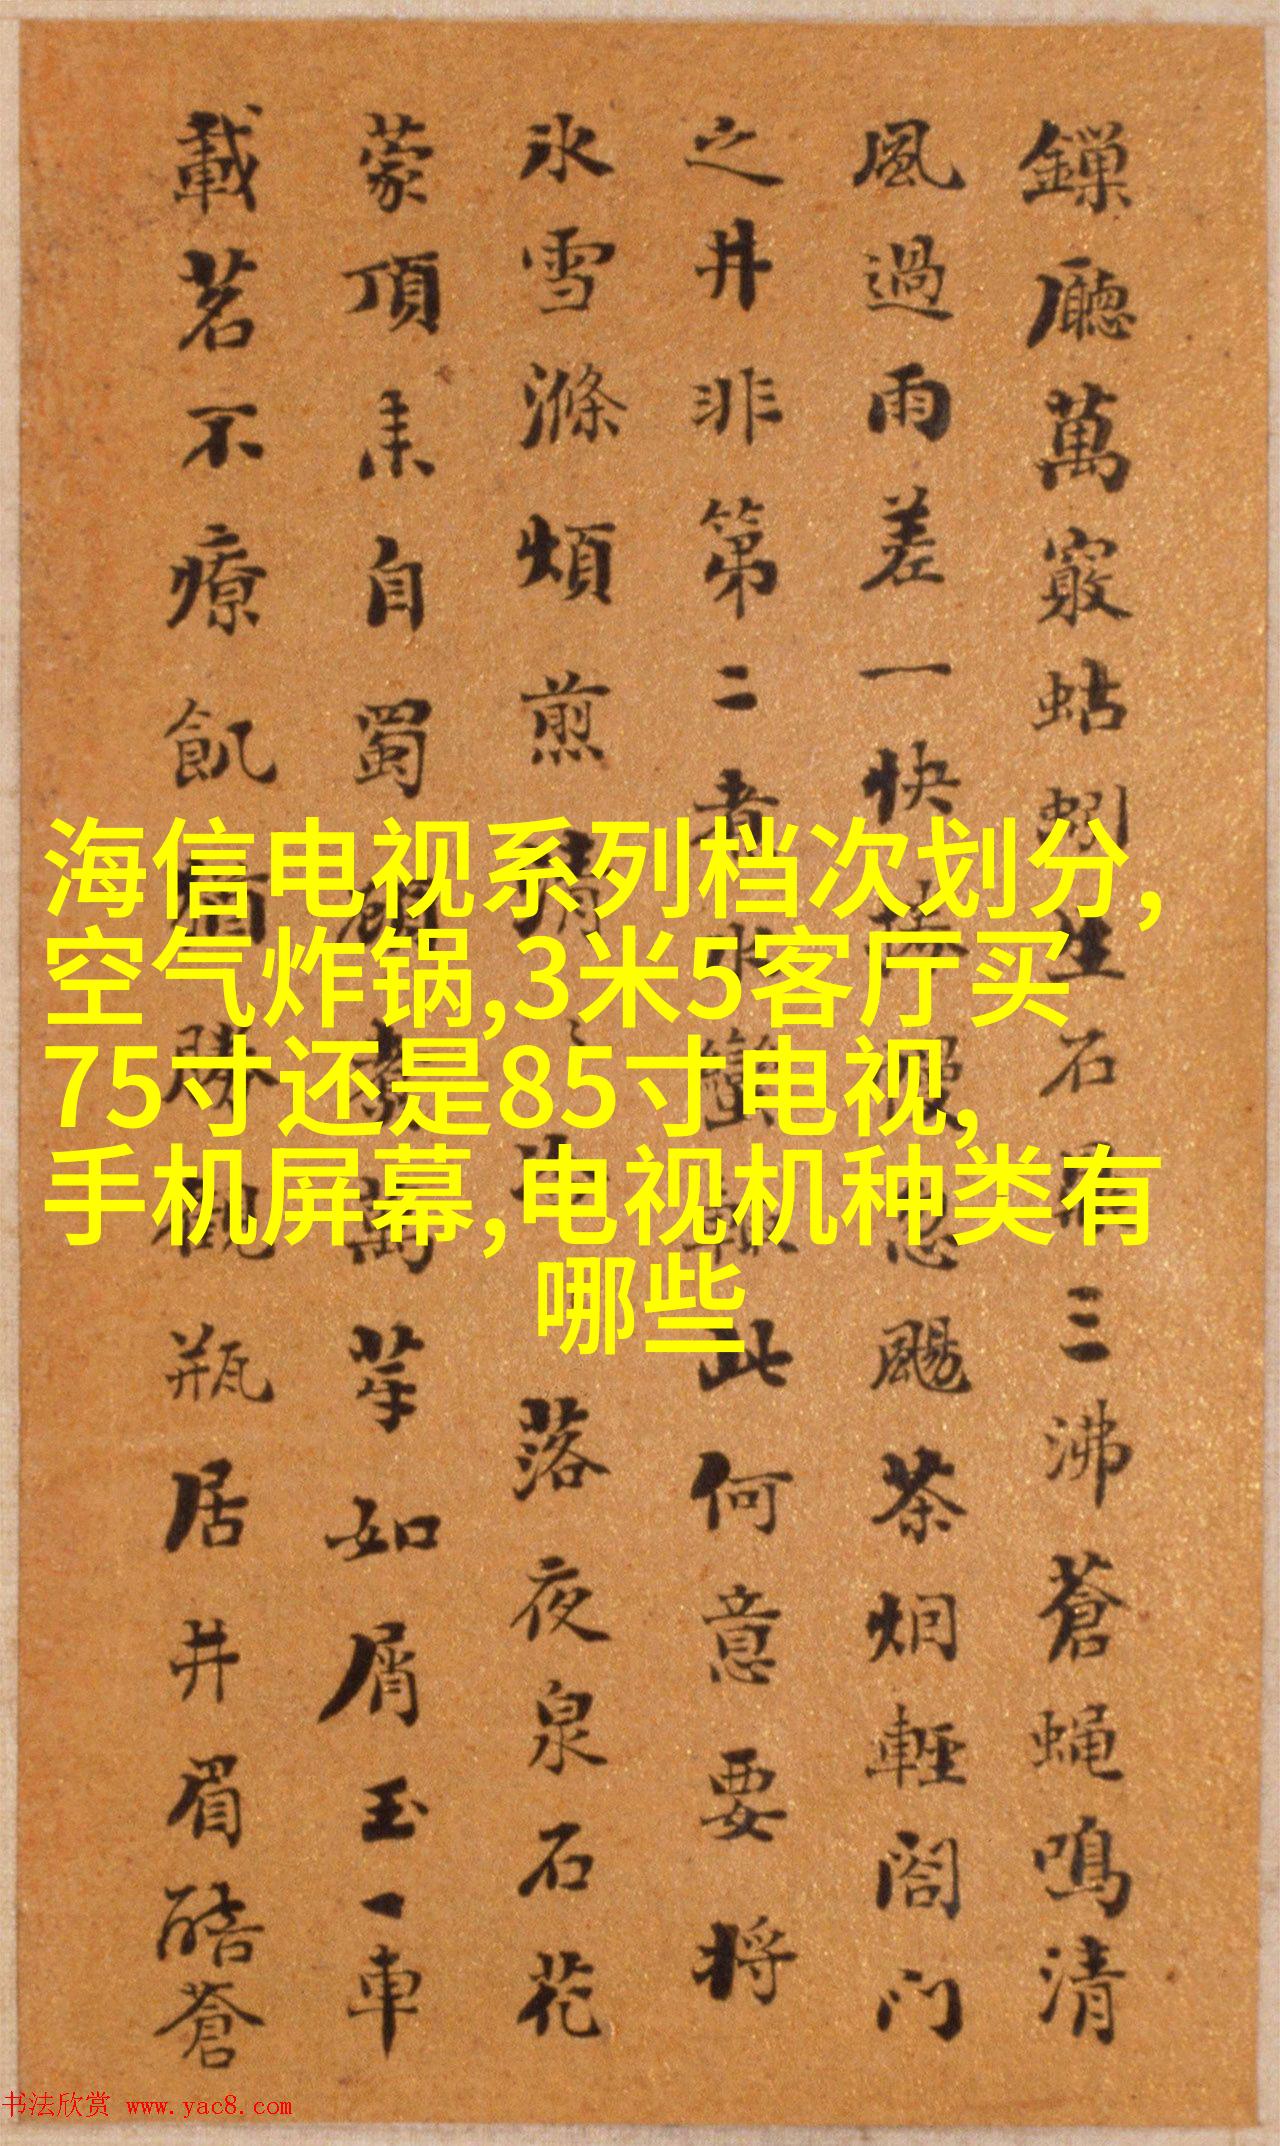 海信电视系列档次划分,
空气炸锅,3米5客厅买
75寸还是85寸电视,
手机屏幕,电视机种类有
哪些
廳萬竅蛄蚓生石三沸蒼蝇鳴清
風過雨差一快忽颺茶烟輕閤门
之井非第二者水此何意要将
氷雪滌煩煎落夜泉石花
蒙頂来自蜀萬芽如屑玉一車
載茗不療飢酒勝觀瓶居井眉酷蒼
书法欣赏 www.yac8.com